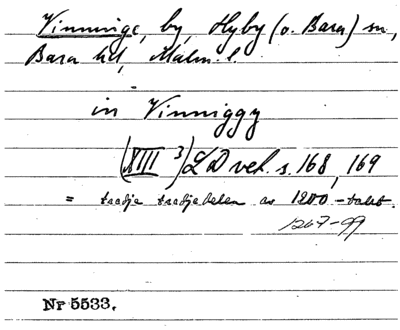 Vinninge, by, Hyby (o. Bara) sn,
Bara hd, Malm. l.
in Vinniggy
(XIII ³) LD vet. s. 168, 169
= tredje tredjedelen av 1200-talet.
1267-99
Nr 5533.